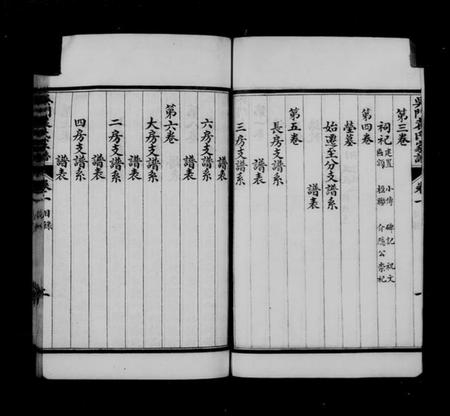 第三卷
祠祀 建置 小傳 碑記 祝文
匾額 楹聯 介隱公崇祀
第四卷
塋墓
始遷至分支譜系
譜表
第五卷
長房支譜系
譜表
三房支譜系
譜表
六房支譜系
譜表
第六卷
大房支譜系
譜表
二房支譜系
譜表
四房支譜系
譜表
卷一 目錄